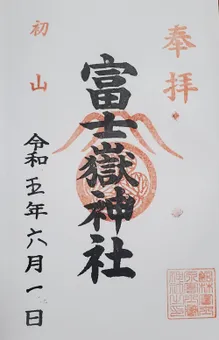 奉拝
初山
富士嶽神社
令和五年六月一日